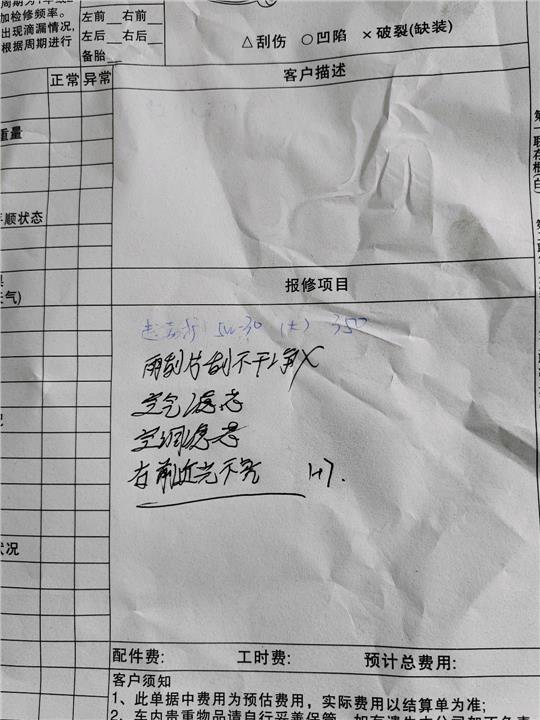 周期为1年或2
加检修频率。
出现滴漏情况,
根据周期进行
左前 右前
左后 右后
备胎
△刮伤 ○凹陷 ×破裂(缺装)
正常 异常
客户描述
重量
顺状态
天气)
状况
第一联存根(白)
报修项目
5W-30 (大) 350
雨刮片刮不干净X
空气滤芯
空调滤芯
右前近光不亮 H7.
配件费: 工时费: 预计总费用:
客户须知
1、此单据中费用为预估费用,实际费用以结算单为准;
2、车内贵重物品请自行妥善保管